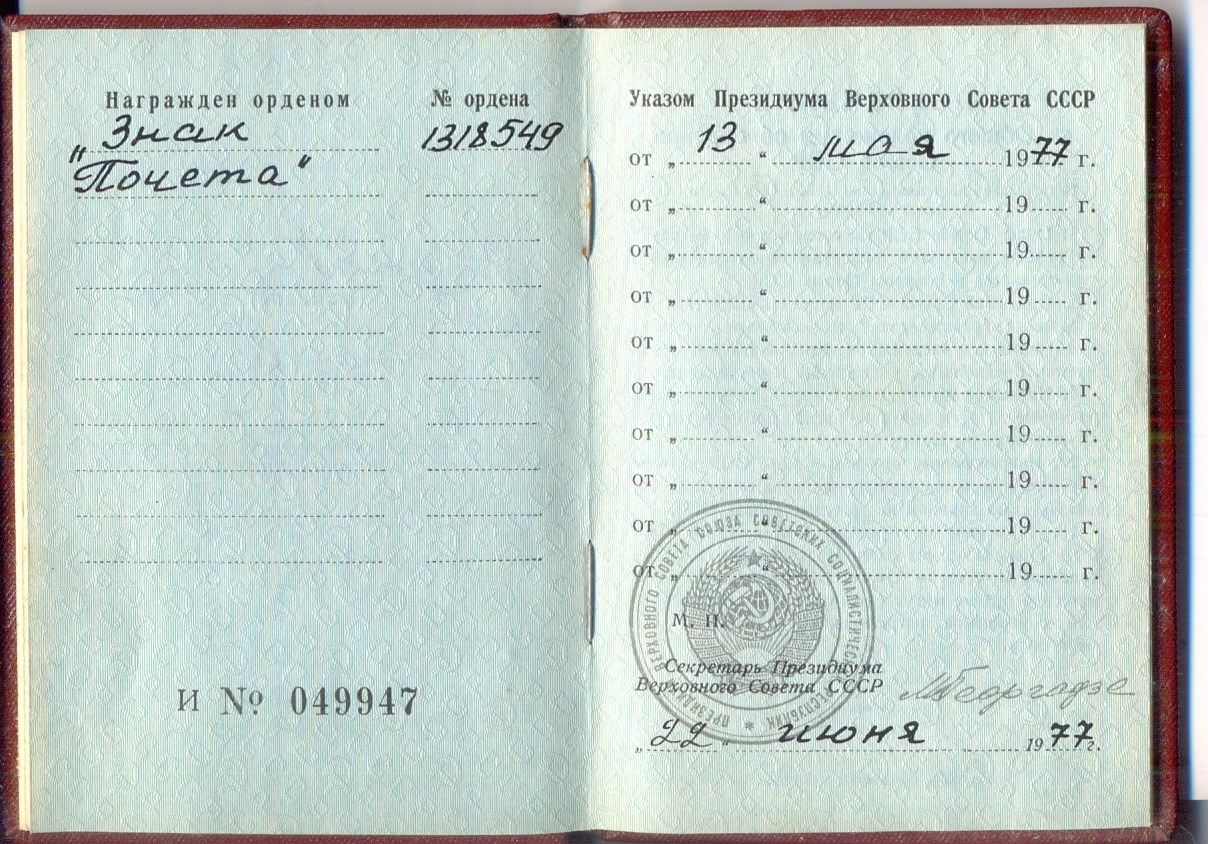 Награжден орденом
№ ордена
„Знак
1318549
Почета"
И № 049947
Указом Президиума Верховного Совета СССР
от „ 13 “ мая 1977 г.
от „ “ 19 г.
от „ “ 19 г.
от „ “ 19 г.
от „ “ 19 г.
от „ “ 19 г.
от „ “ 19 г.
от „ “ 19 г.
от „ “ 19 г.
от „ “ 19 г.
ПРЕЗИДИУМ ВЕРХОВНОГО СОВЕТА СОЮЗА СОВЕТСКИХ СОЦИАЛИСТИЧЕСКИХ РЕСПУБЛИК
М. П.
Секретарь Президиума
Верховного Совета СССР
МГеоргадзе
„ 22 “ июня 1977 г.